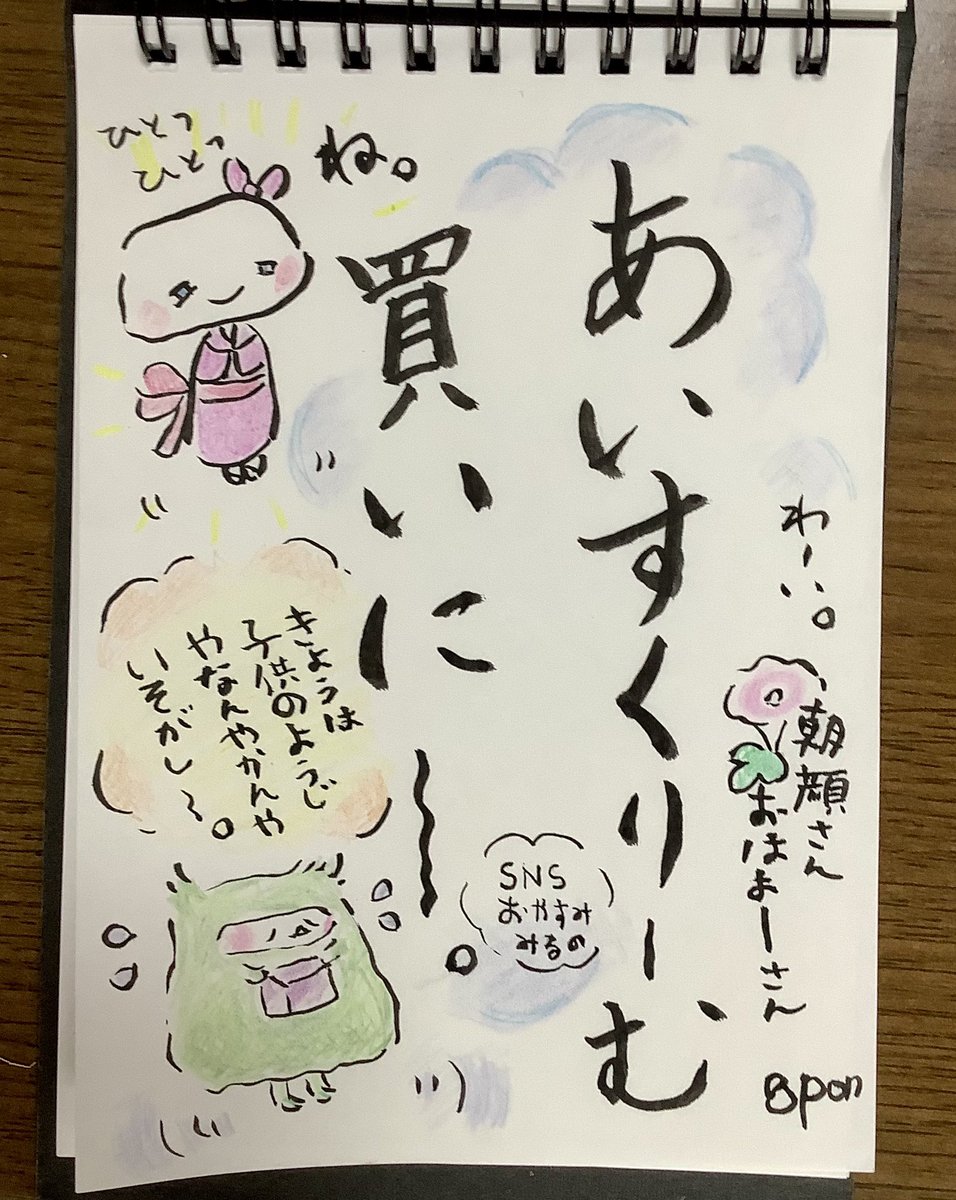 わーい。
朝顔さん
おはよーさん
あいすくりーむ
買いに〜。
SNS
おやすみ
みるの
ひとつ
ひとつ
ね。
きょうは
子供のようじ
やなんやかんや
いそがし〜。
8pon